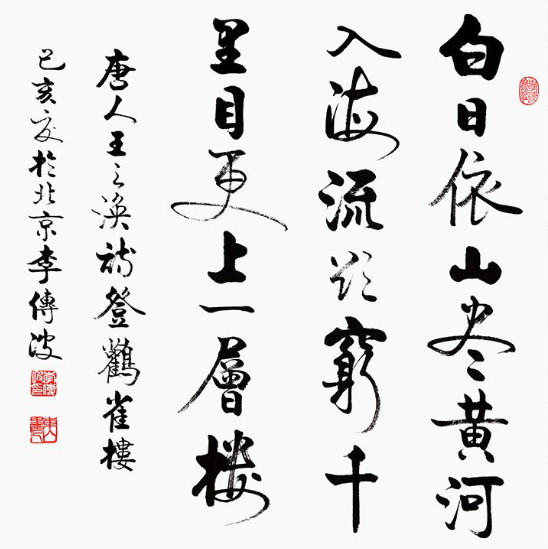 白日依山尽黄河
入海流欲窮千
里目更上一層楼
唐人王之涣诗登鸛雀樓
己亥夏於北京李傳波